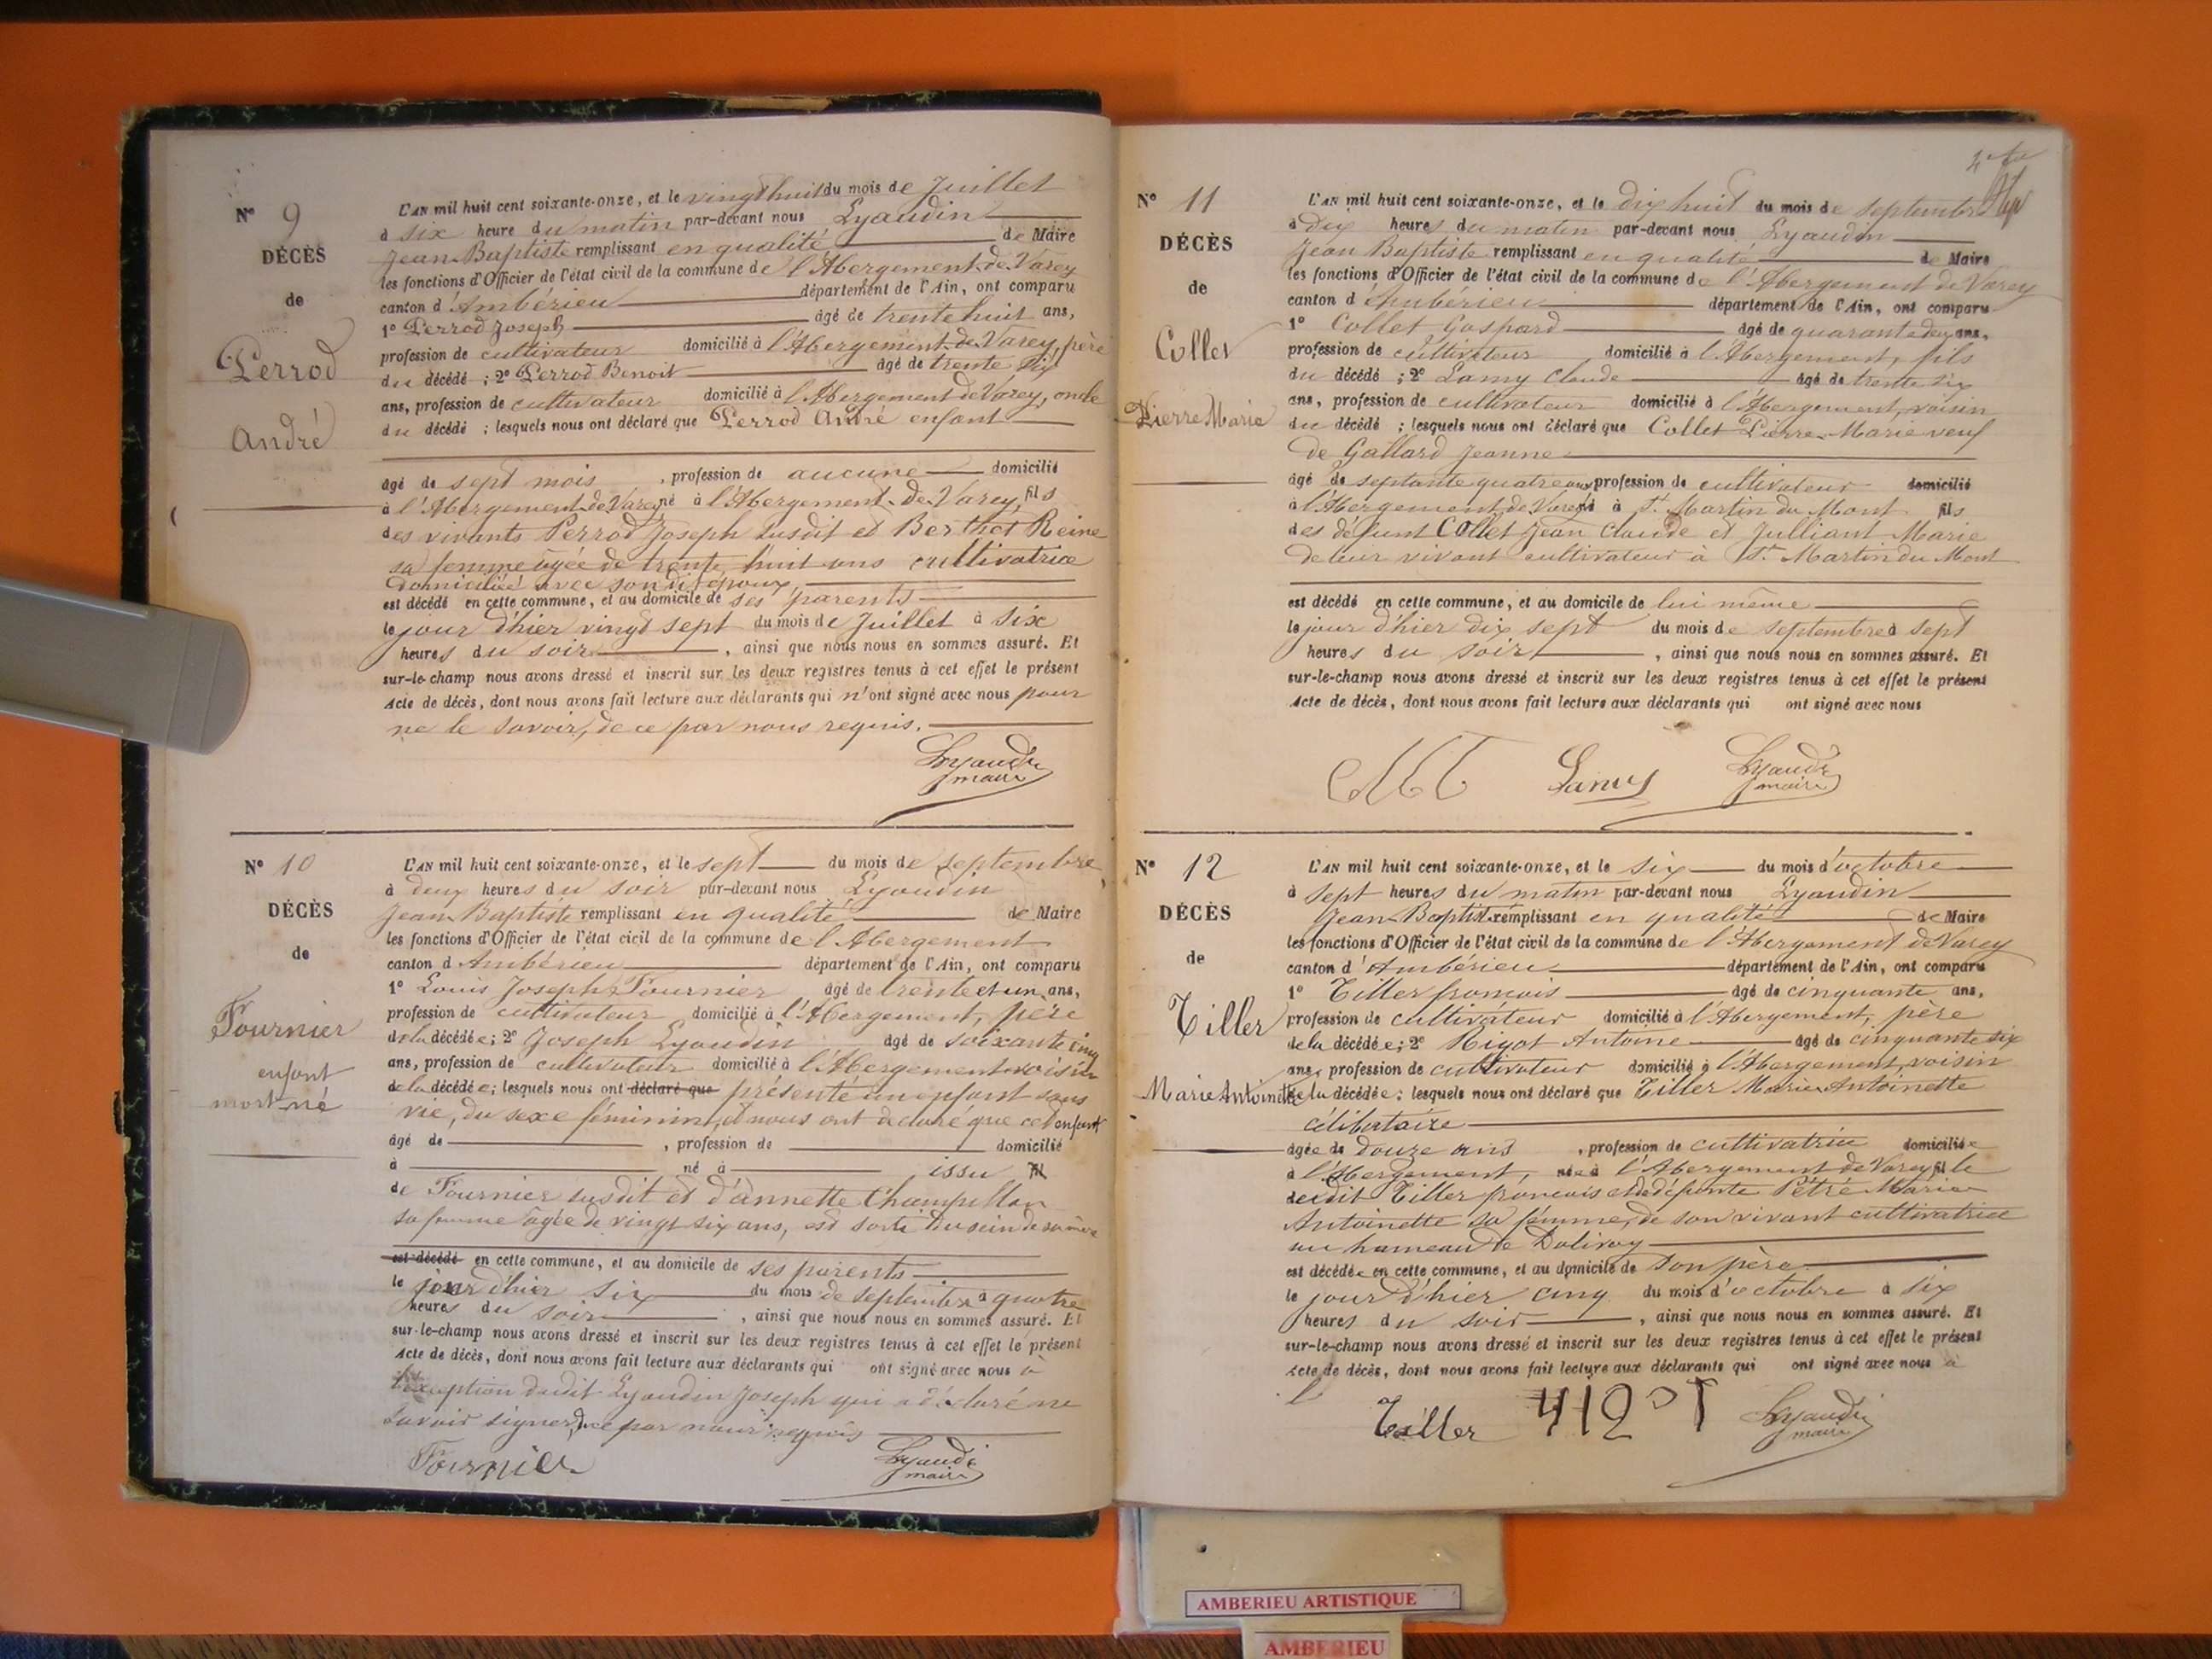 N° 9
DÉCÈS
de
Perrod
André
L'AN mil huit cent soixante-onze, et le vingt huit du mois de Juillet
à six heure du matin par-devant nous Lyaudin
Jean Baptiste remplissant en qualité de Maire
les fonctions d'Officier de l'état civil de la commune de l'Abergement de Varey
canton d'Ambérieu département de l'Ain, ont comparu
1° Perrod Joseph âgé de trente huit ans,
profession de cultivateur domicilié à l'Abergement de Varey, père
du décédé ; 2° Perrod Benoit âgé de trente six
ans, profession de cultivateur domicilié à l'Abergement de Varey, oncle
du décédé ; lesquels nous ont déclaré que Perrod André enfant
âgé de sept mois , profession de aucune domicilié
à l'Abergement de Varey né à l'Abergement de Varey, fils
des vivants Perrod Joseph susdit et Berthet Reine
sa femme âgée de trente huit ans cultivatrice
domiciliée avec son dit époux,
est décédé en cette commune, et au domicile de ses parents
le jour d'hier vingt sept du mois de Juillet à six
heures du soir , ainsi que nous nous en sommes assuré. Et
sur-le-champ nous avons dressé et inscrit sur les deux registres tenus à cet effet le présent
Acte de décès, dont nous avons fait lecture aux déclarants qui n'ont signé avec nous pour
ne le savoir, de ce par nous requis.
Lyaudin
maire
N° 10
DÉCÈS
de
Fournier
enfant
mort-né
L'AN mil huit cent soixante-onze, et le sept du mois de septembre
à deux heures du soir par-devant nous Lyaudin
Jean Baptiste remplissant en qualité de Maire
les fonctions d'Officier de l'état civil de la commune de l'Abergement
canton d'Ambérieu département de l'Ain, ont comparu
1° Louis Joseph Fournier âgé de trente et un ans,
profession de cultivateur domicilié à l'Abergement, père
de la décédée ; 2° Joseph Lyaudin âgé de soixante cinq
ans, profession de cultivateur domicilié à l'Abergement voisin
de la décédée ; lesquels nous ont déclaré que présenté un enfant sans
vie, du sexe féminin, et nous ont déclaré que cet enfant
âgé de , profession de domicilié
à né à issu fil
de Fournier susdit et d'annette Champillon
sa femme âgée de vingt six ans, est sorti du sein de sa mère
est décédé en cette commune, et au domicile de ses parents
le jour d'hier six du mois de septembre à quatre
heures du soir , ainsi que nous nous en sommes assuré. Et
sur-le-champ nous avons dressé et inscrit sur les deux registres tenus à cet effet le présent
Acte de décès, dont nous avons fait lecture aux déclarants qui ont signé avec nous à
l'exception dudit Lyaudin Joseph qui a déclaré ne
savoir signer, de ce par nous requis
Fournier
Lyaudin
maire
N° 11
DÉCÈS
de
Collet
Pierre Marie
L'AN mil huit cent soixante-onze, et le dix huit du mois de septembre
à dix heures du matin par-devant nous Lyaudin
Jean Baptiste remplissant en qualité de Maire
les fonctions d'Officier de l'état civil de la commune de l'Abergement de Varey
canton d'Ambérieu département de l'Ain, ont comparu
1° Collet Gaspard âgé de quarante deux ans,
profession de cultivateur domicilié à l'Abergement, fils
du décédé ; 2° Lamy Claude âgé de trente six
ans, profession de cultivateur domicilié à l'Abergement, voisin
du décédé ; lesquels nous ont déclaré que Collet Pierre-Marie veuf
de Gallard Jeanne
âgé de septante quatre ans profession de cultivateur domicilié
à l'Abergement de Varey né à St Martin du Mont fils
des défunt Collet Jean Claude et Julliant Marie
de leur vivant cultivateur à St Martin du Mont
est décédé en cette commune, et au domicile de lui même
le jour d'hier dix sept du mois de septembre à sept
heures du soir , ainsi que nous nous en sommes assuré. Et
sur-le-champ nous avons dressé et inscrit sur les deux registres tenus à cet effet le présent
Acte de décès, dont nous avons fait lecture aux déclarants qui ont signé avec nous
Lamy
Lyaudin
maire
N° 12
DÉCÈS
de
Tiller
Marie Antoinette
L'AN mil huit cent soixante-onze, et le six du mois d'octobre
à sept heures du matin par-devant nous Lyaudin
Jean-Baptiste remplissant en qualité de Maire
les fonctions d'Officier de l'état civil de la commune de l'Abergement de Varey
canton d'Ambérieu département de l'Ain, ont comparu
1° Tiller francois âgé de cinquante ans,
profession de cultivateur domicilié à l'Abergement, père
de la décédée ; 2° Rigot Antoine âgé de cinquante six
ans, profession de cultivateur domicilié à l'Abergement, voisin
de la décédée ; lesquels nous ont déclaré que Tiller Marie Antoinette
célibataire
âgée de douze ans , profession de cultivatrice domiciliée
à l'Abergement, née à l'Abergement de Varey fille
dudit Tiller francois et de défunte Pétré Marie
Antoinette sa femme, de son vivant cultivatrice
au hameau de Dalivoy
est décédée en cette commune, et au domicile de son père
le jour d'hier cinq du mois d'octobre à six
heures du soir , ainsi que nous nous en sommes assuré. Et
sur-le-champ nous avons dressé et inscrit sur les deux registres tenus à cet effet le présent
Acte de décès, dont nous avons fait lecture aux déclarants qui ont signé avec nous à
l'
Tiller
Lyaudin
maire
AMBERIEU ARTISTIQUE
AMBERIEU